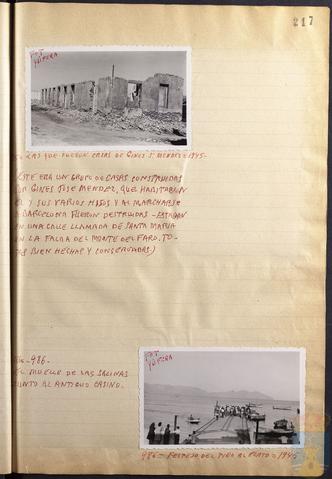 217
FOT
YUFERA
LAS QUE FUERON CASAS DE GINES Jº MENDEZ-1945-
ESTE ERA UN GRUPO DE CASAS CONSTRUIDAS
POR GINES JOSE MENDEZ, QUE HABITABAN
EL Y SUS VARIOS HIJOS Y AL MARCHARSE
A BARCELONA FUERON DESTRUIDAS - ESTABAN
EN UNA CALLE LLAMADA DE SANTA MARIA
EN LA FALDA DEL MONTE DEL FARO. TO-
BIEN HECHAS Y CONSERVADAS)
-486-
EL MUELLE DE LAS SALINAS
JUNTO AL ANTIGUO CASINO.
FOT
YUFERA
486- FESTEJO DEL PATO 1945